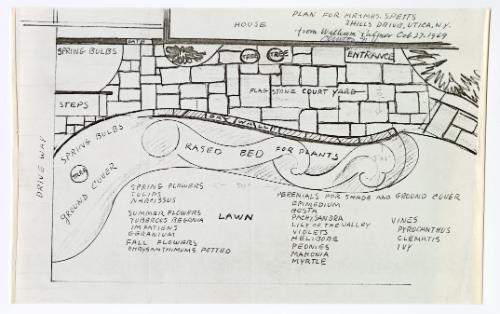 PLAN FOR MR+MRS. SPEFFS
HOUSE
3 HILLS DRIVE, UTICA, N.Y.
from William Palmer Oct 27. 1969
Clinton N.Y.
GATE
SPRING BULBS
TREE
TREE
ENTRANCE
FLAG STONE COURT YARD
STEPS
DRY WALL
SPRING BULBS
RASED BED FOR PLANTS
TREE
DRIVE WAY
GROUND COVER
SPRING FLOWERS
TULIPS
NARCISSUS
SUMMER FLOWERS
TUBEROUS BEGONIA
IMPATIENS
GERANIUM
FALL FLOWERS
CHRYSANTHIMUMS POTTED
LAWN
PERENIALS FOR SHADE AND GROUND COVER
EPIMEDIUM
HOSTA
PACHYSANDRA
LILY OF THE VALLEY
VIOLETS
HELIBORE
PEONIES
MAHONIA
MYRTLE
VINES
PYROCANTHUS
CLEMATIS
IVY